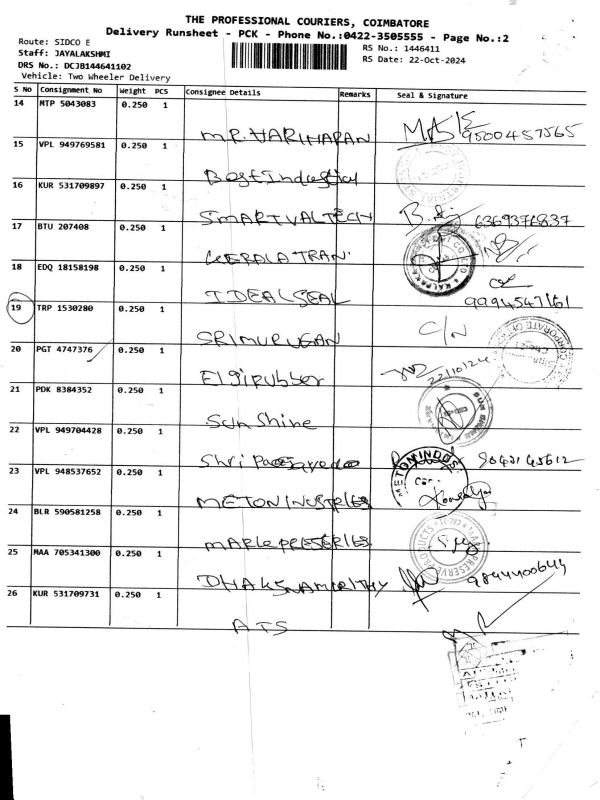 THE PROFESSIONAL COURIERS, COIMBATORE
Delivery Runsheet - PCK - Phone No.:0422-3505555 - Page No.:2
Route: SIDCO E
Staff: JAYALAKSHMI
DRS No.: DCJB144641102
Vehicle: Two Wheeler Delivery
RS No.: 1446411
RS Date: 22-Oct-2024
S No Consignment No Weight PCS Consignee Details Remarks Seal & Signature
14 MTP 5043083 0.250 1
MR. HARIHARAN 9500457565
15 VPL 949769581 0.250 1
Best Industrial
16 KUR 531709897 0.250 1
SMARTVALTECH 6369376837
17 BTU 207408 0.250 1
KERALA TRAN
18 EDQ 18158198 0.250 1
IDEAL SEAL 9994547161
19 TRP 1530280 0.250 1
SRIMURUGAN C/N
20 PGT 4747376 0.250 1
Elgirubber 22/10/24
21 PDK 8384352 0.250 1
Sun Shine
22 VPL 949704428 0.250 1
Shri
23 VPL 948537652 0.250 1
METON INDUSTRIES
24 BLR 590581258 0.250 1
25 MAA 705341300 0.250 1
26 KUR 531709731 0.250 1
ATS